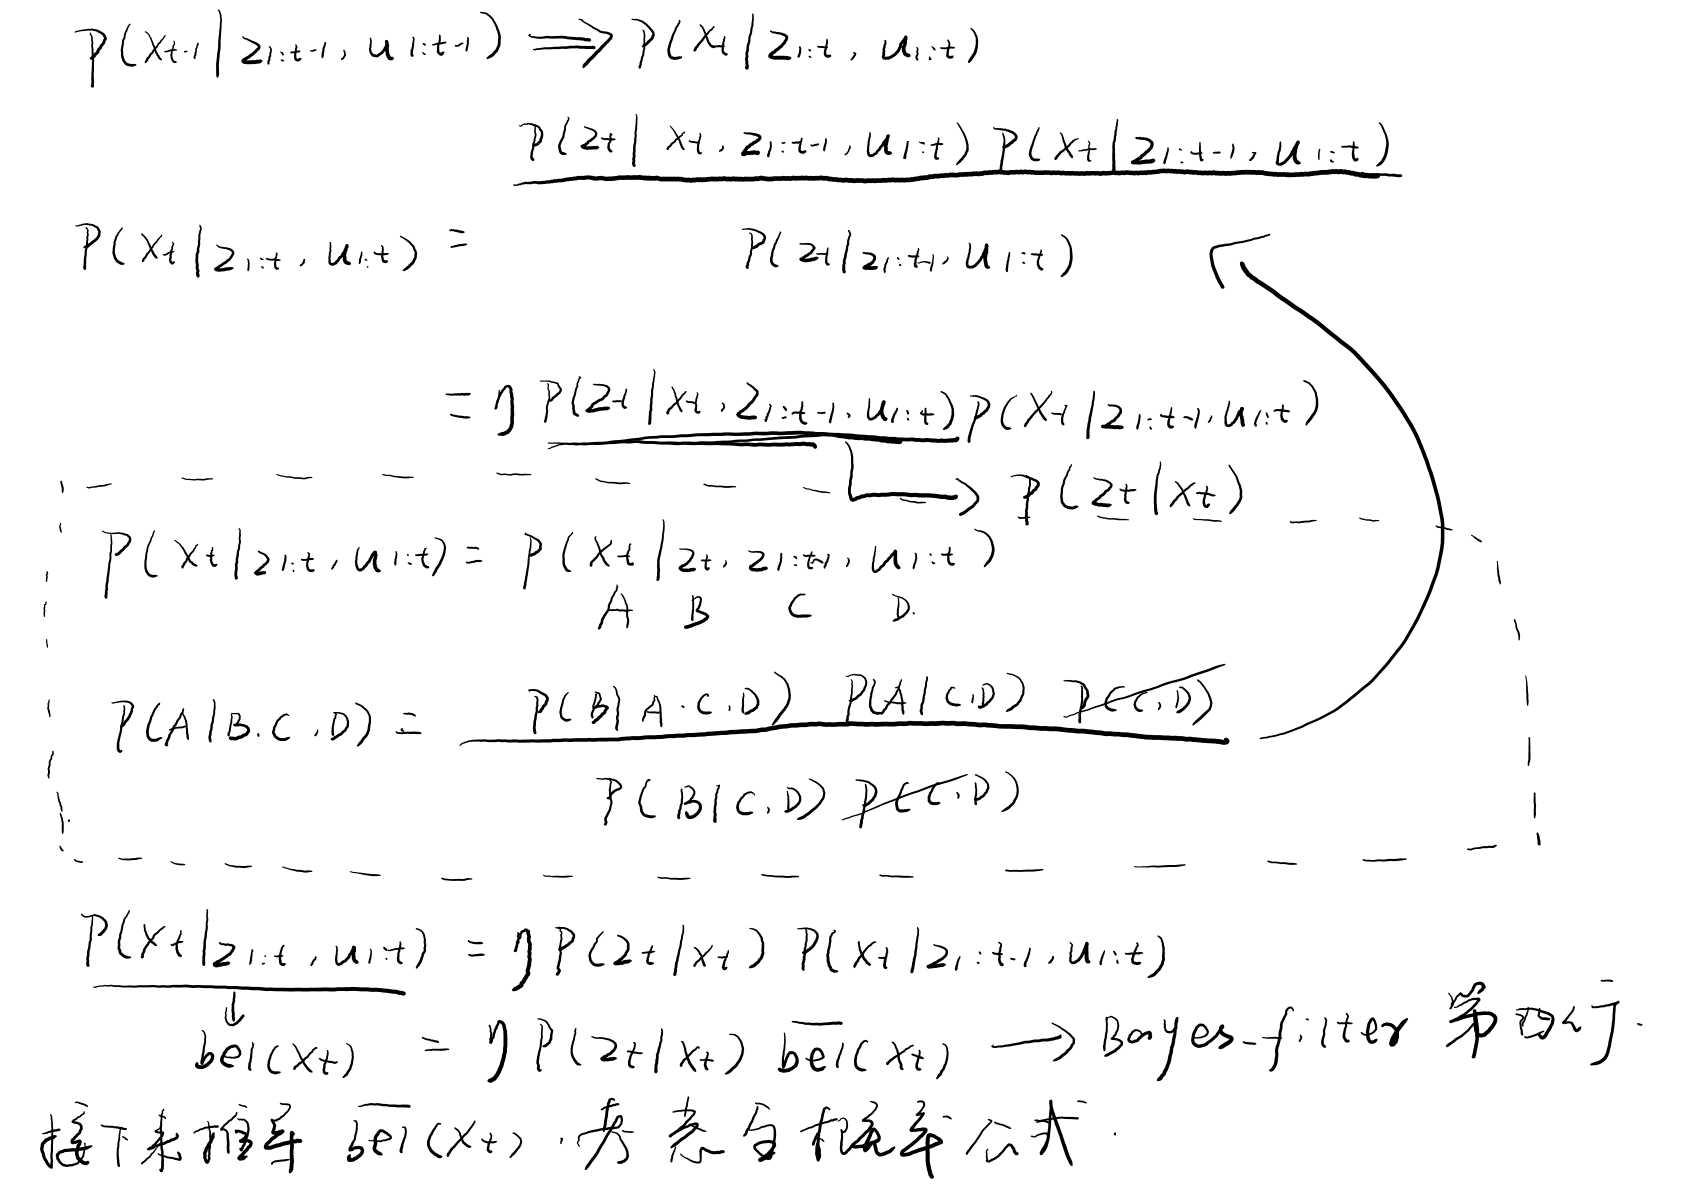 P(Xt-1 | Z1:t-1, U1:t-1) ⟹ P(Xt | Z1:t, U1:t)
P(Zt | Xt, Z1:t-1, U1:t) P(Xt | Z1:t-1, U1:t)
P(Xt | Z1:t, U1:t) =
P(Zt | Z1:t-1, U1:t)
= η P(Zt | Xt, Z1:t-1, U1:t) P(Xt | Z1:t-1, U1:t)
→ P(Zt | Xt)
P(Xt | Z1:t, U1:t) = P(Xt | Zt, Z1:t-1, U1:t)
A B C D.
P(B | A.C.D) P(A | C.D) P(C.D)
P(A | B.C.D) =
P(B | C.D) P(C.D)
P(Xt | Z1:t, U1:t) = η P(Zt | Xt) P(Xt | Z1:t-1, U1:t)
↓
bel(Xt) = η P(Zt | Xt) b̅e̅l̅(Xt) → Bayes_filter 第四行.
接下来推导 b̅e̅l̅(Xt). 考虑全概率公式.